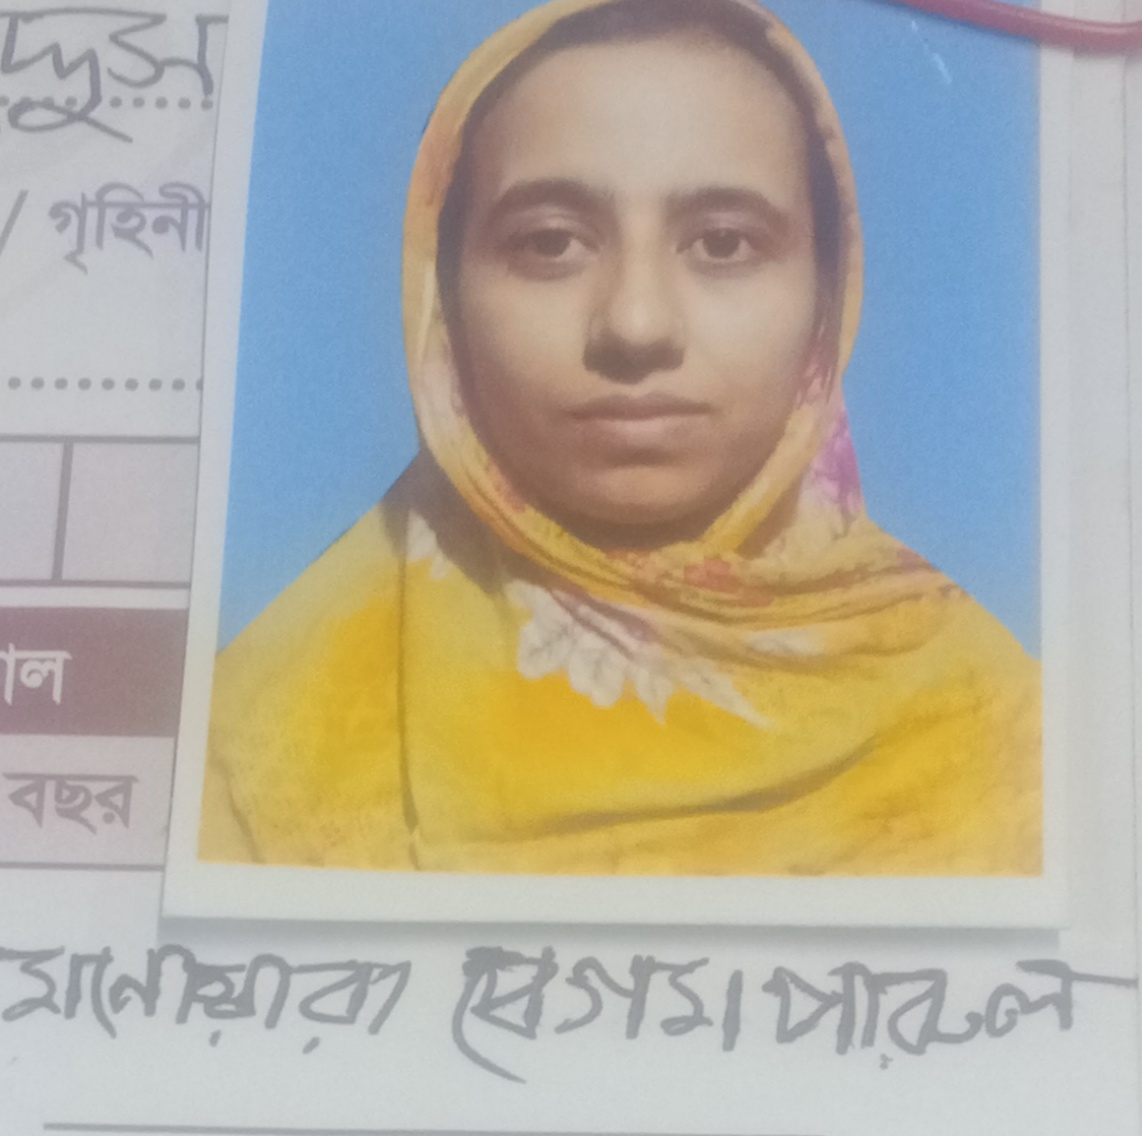 দ্দুস
/ গৃহিনী
াল
বছর
মনোয়ারা বেগম পারুল